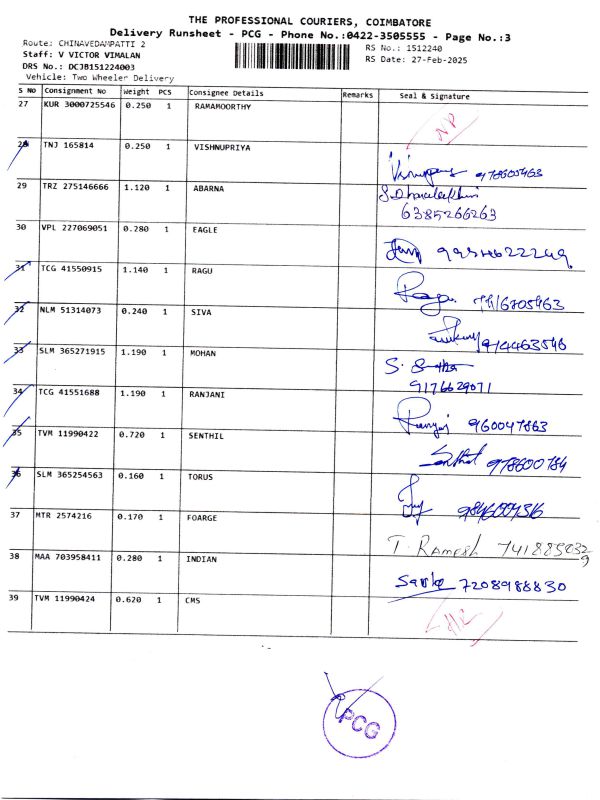 THE PROFESSIONAL COURIERS, COIMBATORE
Delivery Runsheet - PCG - Phone No.:0422-3505555 - Page No.:3
Route: CHINAVEDAMPATTI 2
RS No.: 1512240
Staff: V VICTOR VIMALAN
RS Date: 27-Feb-2025
DRS No.: DCJB151224003
Vehicle: Two Wheeler Delivery
S No Consignment No Weight PCS Consignee Details Remarks Seal & Signature
27 KUR 3000725546 0.250 1 RAMAMOORTHY
NP
28 TNJ 165814 0.250 1 VISHNUPRIYA
29 TRZ 275146666 1.120 1 ABARNA
6385266263
30 VPL 227069051 0.280 1 EAGLE
31 TCG 41550915 1.140 1 RAGU
32 NLM 51314073 0.240 1 SIVA
33 SLM 365271915 1.190 1 MOHAN
9176629071
34 TCG 41551688 1.190 1 RANJANI
960047863
35 TVM 11990422 0.720 1 SENTHIL
Senthil 978600784
36 SLM 365254563 0.160 1 TORUS
37 MTR 2574216 0.170 1 FOARGE
T. RAMESH
38 MAA 703958411 0.280 1 INDIAN
7208988830
39 TVM 11990424 0.620 1 CMS
PCG